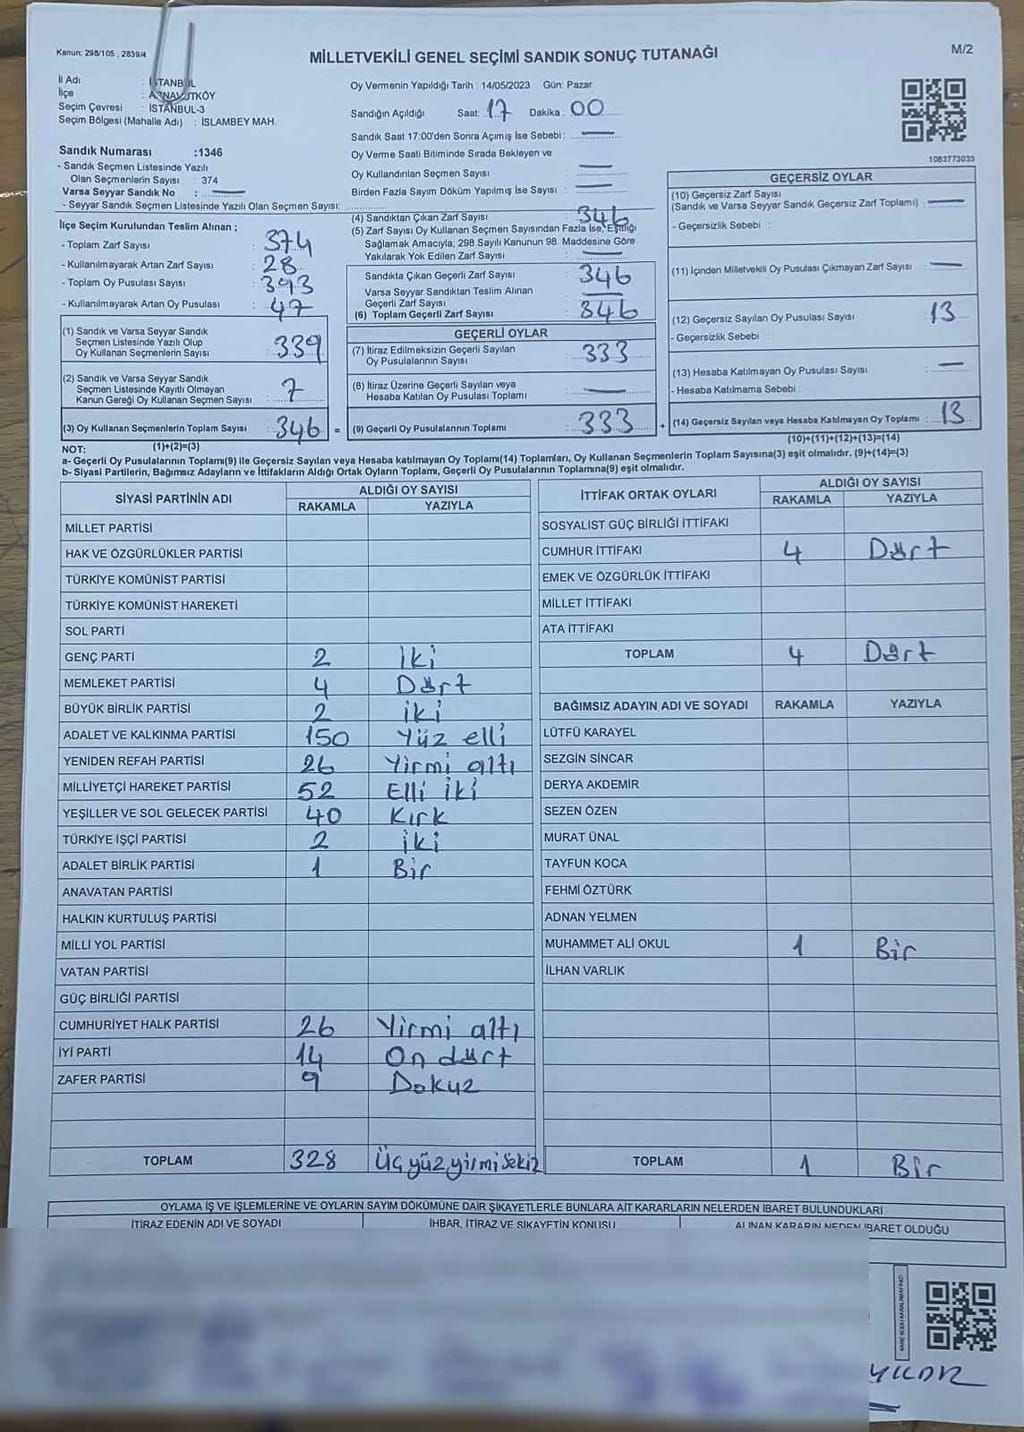 Kanun: 298/105 , 2839/4
MİLLETVEKİLİ GENEL SEÇİMİ SANDIK SONUÇ TUTANAĞI
M/2
İl Adı : İSTANBUL
İlçe : ARNAVUTKÖY
Seçim Çevresi : İSTANBUL-3
Seçim Bölgesi (Mahalle Adı) : İSLAMBEY MAH.
Sandık Numarası :1346
- Sandık Seçmen Listesinde Yazılı
Olan Seçmenlerin Sayısı : 374
Varsa Seyyar Sandık No : —
- Seyyar Sandık Seçmen Listesinde Yazılı Olan Seçmen Sayısı:
Oy Vermenin Yapıldığı Tarih : 14/05/2023 Gün: Pazar
Sandığın Açıldığı Saat: 17 Dakika : 00
Sandık Saat 17:00'den Sonra Açımış İse Sebebi: —
Oy Verme Saati Bitiminde Sırada Bekleyen ve
Oy Kullandırılan Seçmen Sayısı : —
Birden Fazla Sayım Döküm Yapılmış İse Sayısı : —
1083773033
İlçe Seçim Kurulundan Teslim Alınan ;
- Toplam Zarf Sayısı : 374
- Kullanılmayarak Artan Zarf Sayısı : 28
- Toplam Oy Pusulası Sayısı : 393
- Kullanılmayarak Artan Oy Pusulası : 47
(1) Sandık ve Varsa Seyyar Sandık
Seçmen Listesinde Yazılı Olup
Oy Kullanan Seçmenlerin Sayısı : 339
(2) Sandık ve Varsa Seyyar Sandık
Seçmen Listesinde Kayıtlı Olmayan
Kanun Gereği Oy Kullanan Seçmen Sayısı : 7
(3) Oy Kullanan Seçmenlerin Toplam Sayısı : 346 =
(4) Sandıktan Çıkan Zarf Sayısı : 346
(5) Zarf Sayısı Oy Kullanan Seçmen Sayısından Fazla İse, Eşitliği
Sağlamak Amacıyla, 298 Sayılı Kanunun 98. Maddesine Göre
Yakılarak Yok Edilen Zarf Sayısı : —
Sandıkta Çıkan Geçerli Zarf Sayısı : 346
Varsa Seyyar Sandıktan Teslim Alınan
Geçerli Zarf Sayısı : —
(6) Toplam Geçerli Zarf Sayısı : 346
GEÇERLİ OYLAR
(7) İtiraz Edilmeksizin Geçerli Sayılan
Oy Pusulalarının Sayısı : 333
(8) İtiraz Üzerine Geçerli Sayılan veya
Hesaba Katılan Oy Pusulası Toplamı : —
(9) Geçerli Oy Pusulalarının Toplamı : 333 +
GEÇERSİZ OYLAR
(10) Geçersiz Zarf Sayısı
(Sandık ve Varsa Seyyar Sandık Geçersiz Zarf Toplamı) : —
- Geçersizlik Sebebi :
(11) İçinden Milletvekili Oy Pusulası Çıkmayan Zarf Sayısı : —
(12) Geçersiz Sayılan Oy Pusulası Sayısı : 13
- Geçersizlik Sebebi :
(13) Hesaba Katılmayan Oy Pusulası Sayısı : —
- Hesaba Katılmama Sebebi :
(14) Geçersiz Sayılan veya Hesaba Katılmayan Oy Toplamı : 13
NOT: (1)+(2)=(3) (10)+(11)+(12)+(13)=(14)
a- Geçerli Oy Pusulalarının Toplamı(9) ile Geçersiz Sayılan veya Hesaba katılmayan Oy Toplamı(14) Toplamları, Oy Kullanan Seçmenlerin Toplam Sayısına(3) eşit olmalıdır. (9)+(14)=(3)
b- Siyasi Partilerin, Bağımsız Adayların ve İttifakların Aldığı Ortak Oyların Toplamı, Geçerli Oy Pusulalarının Toplamına(9) eşit olmalıdır.
SİYASİ PARTİNİN ADI ALDIĞI OY SAYISI
RAKAMLA YAZIYLA
MİLLET PARTİSİ
HAK VE ÖZGÜRLÜKLER PARTİSİ
TÜRKİYE KOMÜNİST PARTİSİ
TÜRKİYE KOMÜNİST HAREKETİ
SOL PARTİ
GENÇ PARTİ 2 İki
MEMLEKET PARTİSİ 4 Dört
BÜYÜK BİRLİK PARTİSİ 2 iki
ADALET VE KALKINMA PARTİSİ 150 Yüz elli
YENİDEN REFAH PARTİSİ 26 Yirmi altı
MİLLİYETÇİ HAREKET PARTİSİ 52 Elli iki
YEŞİLLER VE SOL GELECEK PARTİSİ 40 Kırk
TÜRKİYE İŞÇİ PARTİSİ 2 iki
ADALET BİRLİK PARTİSİ 1 Bir
ANAVATAN PARTİSİ
HALKIN KURTULUŞ PARTİSİ
MİLLİ YOL PARTİSİ
VATAN PARTİSİ
GÜÇ BİRLİĞİ PARTİSİ
CUMHURİYET HALK PARTİSİ 26 Yirmi altı
İYİ PARTİ 14 On dört
ZAFER PARTİSİ 9 Dokuz
TOPLAM 328 Üçyüzyirmisekiz
İTTİFAK ORTAK OYLARI ALDIĞI OY SAYISI
RAKAMLA YAZIYLA
SOSYALİST GÜÇ BİRLİĞİ İTTİFAKI
CUMHUR İTTİFAKI 4 Dört
EMEK VE ÖZGÜRLÜK İTTİFAKI
MİLLET İTTİFAKI
ATA İTTİFAKI
TOPLAM 4 Dört
BAĞIMSIZ ADAYIN ADI VE SOYADI RAKAMLA YAZIYLA
LÜTFÜ KARAYEL
SEZGİN SİNCAR
DERYA AKDEMİR
SEZEN ÖZEN
MURAT ÜNAL
TAYFUN KOCA
FEHMİ ÖZTÜRK
ADNAN YELMEN
MUHAMMET ALİ OKUL 1 Bir
İLHAN VARLIK
TOPLAM 1 Bir
OYLAMA İŞ VE İŞLEMLERİNE VE OYLARIN SAYIM DÖKÜMÜNE DAİR ŞİKAYETLERLE BUNLARA AİT KARARLARIN NELERDEN İBARET BULUNDUKLARI
İTİRAZ EDENİN ADI VE SOYADI İHBAR, İTİRAZ VE ŞİKAYETİN KONUSU ALINAN KARARIN NEDEN İBARET OLDUĞU